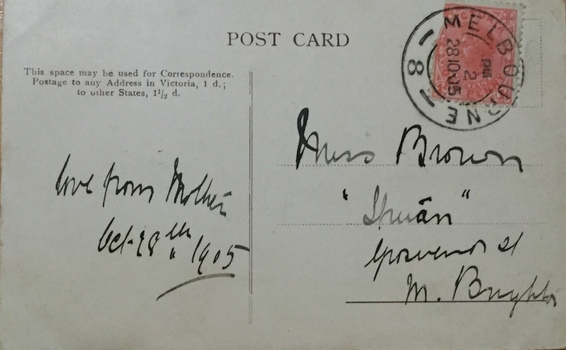 POST CARD
This space may be used for Correspondence.
Postage to any Address in Victoria, 1 d.;
to other States, 1½ d.
MELBOURNE
2
28 10 05
8
love from Mother
Oct 28th 1905
Miss Brown
Grosvenor St
M. Brighton